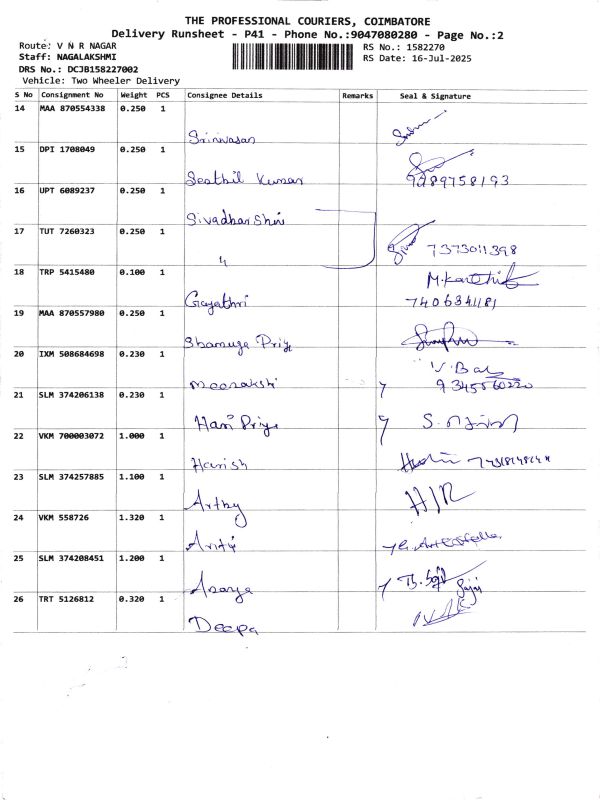 THE PROFESSIONAL COURIERS, COIMBATORE
Delivery Runsheet - P41 - Phone No.:9047080280 - Page No.:2
Route: V N R NAGAR
RS No.: 1582270
Staff: NAGALAKSHMI
RS Date: 16-Jul-2025
DRS No.: DCJB158227002
Vehicle: Two Wheeler Delivery
S No Consignment No Weight PCS Consignee Details Remarks Seal & Signature
14 MAA 870554338 0.250 1
Srinivasan
15 DPI 1708049 0.250 1
Senthil Kumar 9289758193
16 UPT 6089237 0.250 1
Sivadharshini
17 TUT 7260323 0.250 1
7373011398
18 TRP 5415480 0.100 1 M.Karthik
Gayathri 7406341181
19 MAA 870557980 0.250 1
Shamuga Priya
20 IXM 508684698 0.230 1
Meenakshi 9345560220
21 SLM 374206138 0.230 1
Hari Priya
22 VKM 700003072 1.000 1
Harish
23 SLM 374257885 1.100 1
Arthy
24 VKM 558726 1.320 1
25 SLM 374208451 1.200 1
26 TRT 5126812 0.320 1
Deepa